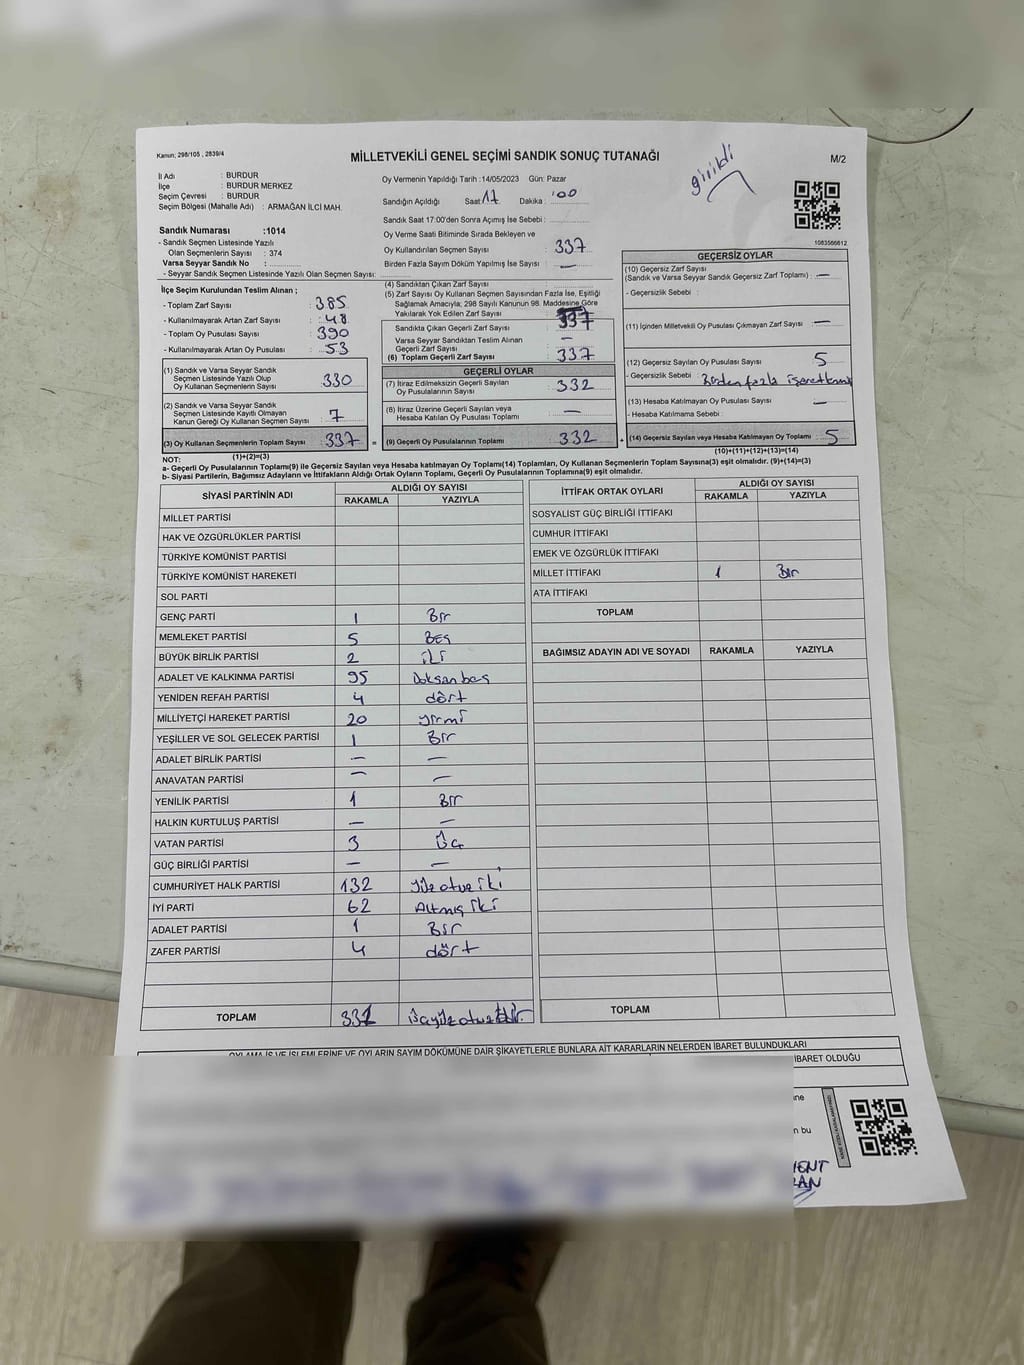 Kanun; 298/105 , 2839/4
MİLLETVEKİLİ GENEL SEÇİMİ SANDIK SONUÇ TUTANAĞI
M/2
girildi
İl Adı : BURDUR
İlçe : BURDUR MERKEZ
Seçim Çevresi : BURDUR
Seçim Bölgesi (Mahalle Adı) : ARMAĞAN İLCİ MAH.
Oy Vermenin Yapıldığı Tarih :14/05/2023 Gün: Pazar
Sandığın Açıldığı Saat 17 Dakika : 00
Sandık Saat 17:00'den Sonra Açımış İse Sebebi :
Oy Verme Saati Bitiminde Sırada Bekleyen ve
Oy Kullandırılan Seçmen Sayısı : 337
Birden Fazla Sayım Döküm Yapılmış İse Sayısı : —
1083566612
Sandık Numarası :1014
- Sandık Seçmen Listesinde Yazılı
Olan Seçmenlerin Sayısı : 374
Varsa Seyyar Sandık No :
- Seyyar Sandık Seçmen Listesinde Yazılı Olan Seçmen Sayısı:
İlçe Seçim Kurulundan Teslim Alınan ;
- Toplam Zarf Sayısı : 385
- Kullanılmayarak Artan Zarf Sayısı : 48
- Toplam Oy Pusulası Sayısı : 390
- Kullanılmayarak Artan Oy Pusulası : 53
(1) Sandık ve Varsa Seyyar Sandık
Seçmen Listesinde Yazılı Olup
Oy Kullanan Seçmenlerin Sayısı : 330
(2) Sandık ve Varsa Seyyar Sandık
Seçmen Listesinde Kayıtlı Olmayan
Kanun Gereği Oy Kullanan Seçmen Sayısı : 7
(3) Oy Kullanan Seçmenlerin Toplam Sayısı : 337
(1)+(2)=(3)
(4) Sandıktan Çıkan Zarf Sayısı :
(5) Zarf Sayısı Oy Kullanan Seçmen Sayısından Fazla İse, Eşitliği
Sağlamak Amacıyla; 298 Sayılı Kanunun 98. Maddesine Göre
Yakılarak Yok Edilen Zarf Sayısı :
Sandıkta Çıkan Geçerli Zarf Sayısı : 337
Varsa Seyyar Sandıktan Teslim Alınan
Geçerli Zarf Sayısı : —
(6) Toplam Geçerli Zarf Sayısı : 337
GEÇERLİ OYLAR
(7) İtiraz Edilmeksizin Geçerli Sayılan
Oy Pusulalarının Sayısı : 332
(8) İtiraz Üzerine Geçerli Sayılan veya
Hesaba Katılan Oy Pusulası Toplamı : —
= (9) Geçerli Oy Pusulalarının Toplamı : 332
GEÇERSİZ OYLAR
(10) Geçersiz Zarf Sayısı
(Sandık ve Varsa Seyyar Sandık Geçersiz Zarf Toplamı) : —
- Geçersizlik Sebebi :
(11) İçinden Milletvekili Oy Pusulası Çıkmayan Zarf Sayısı : —
(12) Geçersiz Sayılan Oy Pusulası Sayısı : 5
- Geçersizlik Sebebi : Birden fazla işaretleme
(13) Hesaba Katılmayan Oy Pusulası Sayısı : —
- Hesaba Katılmama Sebebi :
+ (14) Geçersiz Sayılan veya Hesaba Katılmayan Oy Toplamı : 5
(10)+(11)+(12)+(13)=(14)
NOT:
a- Geçerli Oy Pusulalarının Toplamı(9) ile Geçersiz Sayılan veya Hesaba katılmayan Oy Toplamı(14) Toplamları, Oy Kullanan Seçmenlerin Toplam Sayısına(3) eşit olmalıdır. (9)+(14)=(3)
b- Siyasi Partilerin, Bağımsız Adayların ve İttifakların Aldığı Ortak Oyların Toplamı, Geçerli Oy Pusulalarının Toplamına(9) eşit olmalıdır.
SİYASİ PARTİNİN ADI ALDIĞI OY SAYISI
RAKAMLA YAZIYLA
MİLLET PARTİSİ
HAK VE ÖZGÜRLÜKLER PARTİSİ
TÜRKİYE KOMÜNİST PARTİSİ
TÜRKİYE KOMÜNİST HAREKETİ
SOL PARTİ
GENÇ PARTİ 1 Bir
MEMLEKET PARTİSİ 5 Beş
BÜYÜK BİRLİK PARTİSİ 2 iki
ADALET VE KALKINMA PARTİSİ 95 Doksanbeş
YENİDEN REFAH PARTİSİ 4 dört
MİLLİYETÇİ HAREKET PARTİSİ 20 yirmi
YEŞİLLER VE SOL GELECEK PARTİSİ 1 Bir
ADALET BİRLİK PARTİSİ — —
ANAVATAN PARTİSİ — —
YENİLİK PARTİSİ 1 Bir
HALKIN KURTULUŞ PARTİSİ — —
VATAN PARTİSİ 3 Üç
GÜÇ BİRLİĞİ PARTİSİ — —
CUMHURİYET HALK PARTİSİ 132 Yüz otuz iki
İYİ PARTİ 62 Altmış iki
ADALET PARTİSİ 1 Bir
ZAFER PARTİSİ 4 dört
TOPLAM 331 üçyüz otuz
İTTİFAK ORTAK OYLARI ALDIĞI OY SAYISI
RAKAMLA YAZIYLA
SOSYALİST GÜÇ BİRLİĞİ İTTİFAKI
CUMHUR İTTİFAKI
EMEK VE ÖZGÜRLÜK İTTİFAKI
MİLLET İTTİFAKI 1 Bir
ATA İTTİFAKI
TOPLAM
BAĞIMSIZ ADAYIN ADI VE SOYADI RAKAMLA YAZIYLA
TOPLAM
OYLAMA İŞ VE İŞLEMLERİNE VE OYLARIN SAYIM DÖKÜMÜNE DAİR ŞİKAYETLERLE BUNLARA AİT KARARLARIN NELERDEN İBARET BULUNDUKLARI
İBARET OLDUĞU
ne
n bu